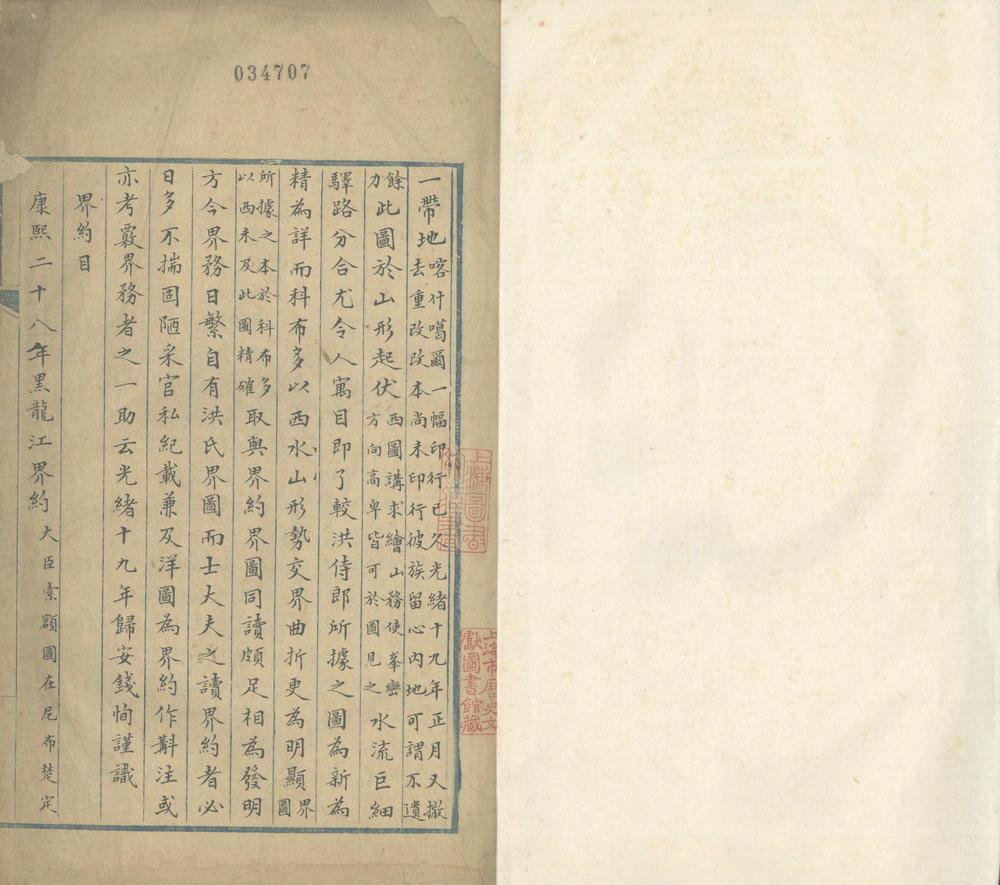 034707
一帶地喀什噶爾一幅印行已久光緒十九年正月又撤去重改改本尚未印行彼族留心內地可謂不遺
餘力此圖於山形起伏西圖講求繪山務使峯巒方向高卑皆可於圖見之水流巨細
驛路分合尤令人寓目即了較洪侍郎所據之圖為新為
精為詳而科布多以西水山形勢交界曲折更為明顯界圖
所據之本於科布多以西未及此圖精確取與界約界圖同讀頗足相為發明
方今界務日繁自有洪氏界圖而士大夫之讀界約者必
日多不揣固陋采官私紀載兼及洋圖為界約作斠注或
亦考覈界務者之一助云光緒十九年歸安錢恂謹識
界約目
康熙二十八年黑龍江界約大臣索額圖在尼布楚定
上海圖書館藏書
上海市歷史文獻圖書館藏